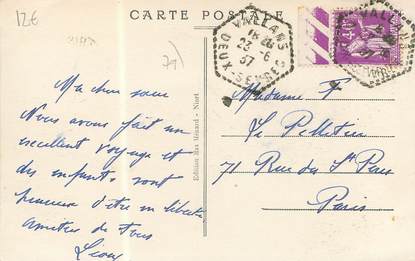 12€
CARTE POSTALE
VALLANS
18 26
23 - 6
37
DEUX-SEVRES
Ma chère sœur
Nous avons fait un
excellent voyage et
les enfants sont
heureux d'être en liberté
amitiés de tous
Edition Max Ménard - Niort
Madame F
Le Pelletier
71 Rue du St Pères
Paris